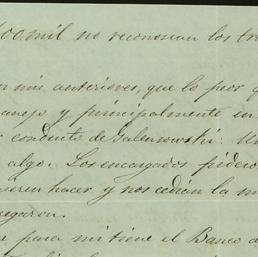 00. mil no reconocian los tra
n mis anteriores, que lo peor q
anejo y principalmente en
conducto de Galensowski.
algo. Los encargados pidero
ieren hacer y nos cedian la m
egaron.
para mi tiene el Banco d